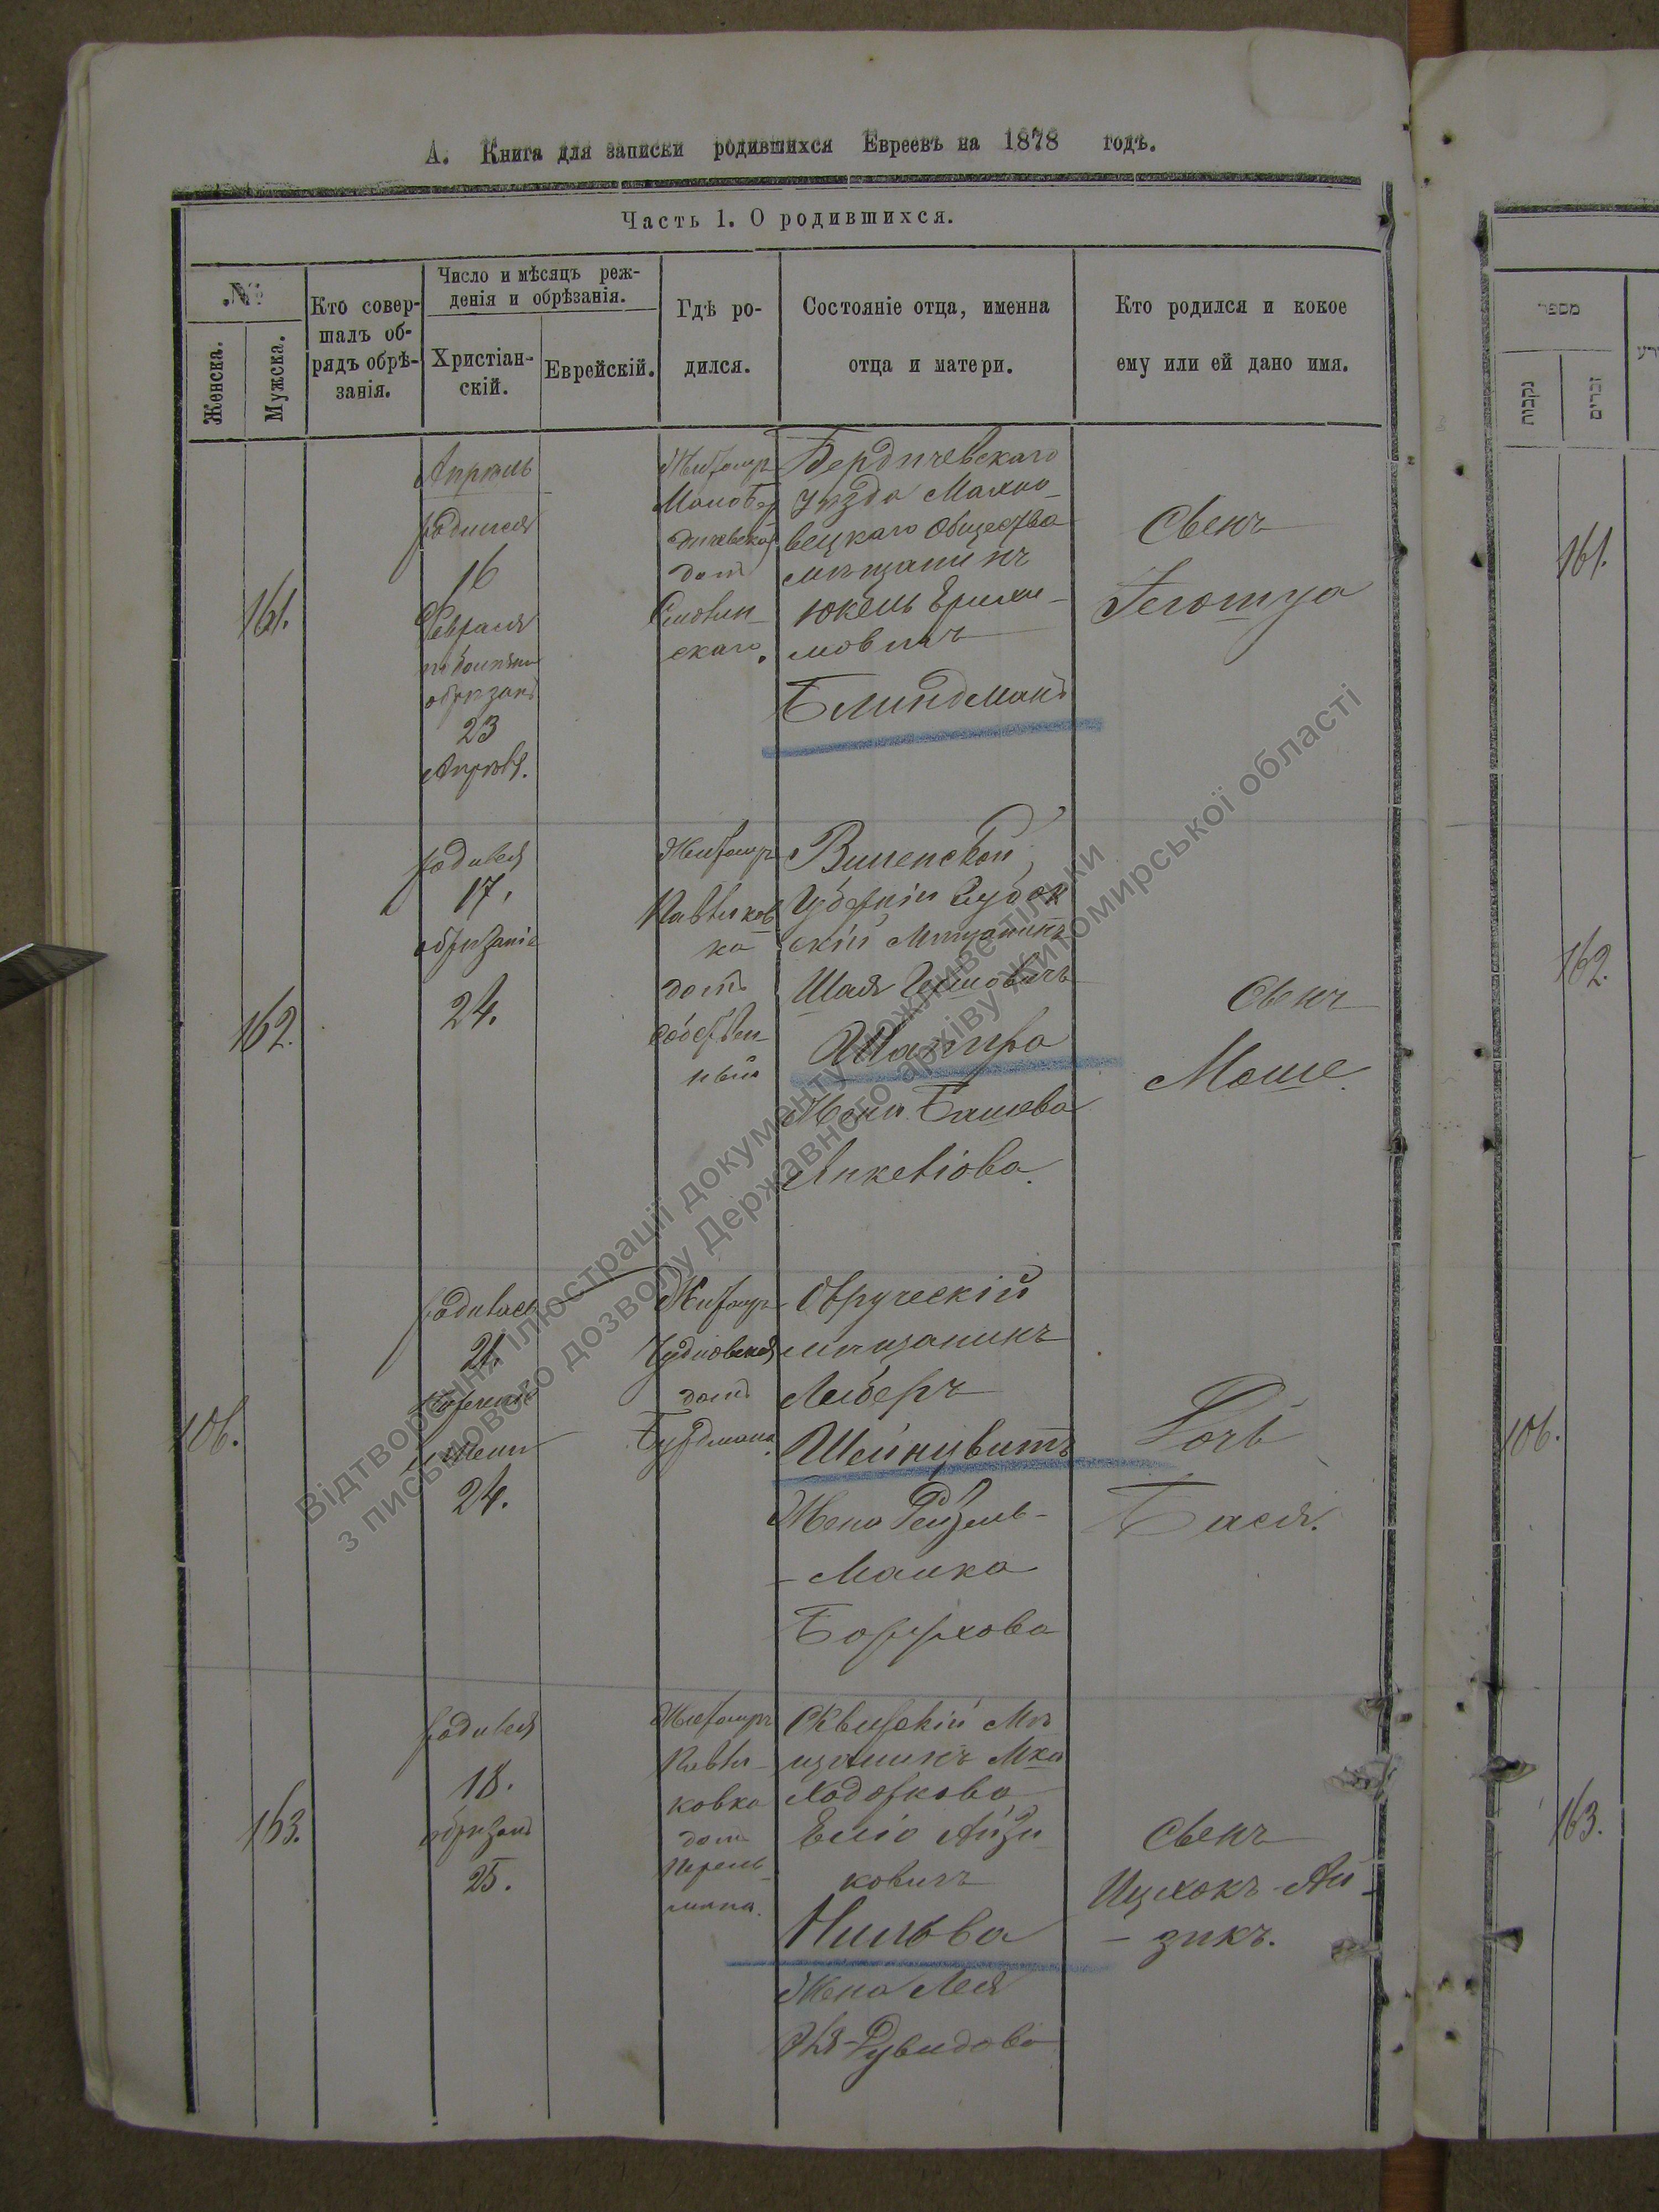 А. Книга для записки родившихся Евреевъ на 1878 годъ.
Часть 1. О родившихся.
№
Женска.
Мужска.
Кто совер-
шалъ об-
рядъ обрѣ-
занія.
Число и мѣсяцъ реж-
денія и обрѣзанія.
Христіан-
скій.
Еврейскій.
Гдѣ ро-
дился.
Состояніе отца, именна
отца и матери.
Кто родился и кокое
ему или ей дано имя.
161.
Апрель
родился
16
Февраля
обрезанъ
23
Житомиръ
дом
Бердичевскаго
уѣзда Махно-
вецкаго общества
мѣщанинъ
Юкель
Блиндманъ
Свенъ
162.
родився
17.
обрѣзаніе
24.
Житомръ
Павликов
ка
домъ
собствен-
ный
Виленской
Губерніи
скій Мѣщанинъ
Шая
Шапиро
Жена Башева
Свенъ
Моше.
106.
родилась
21.
имени
24.
Житомръ
Чудновская
домъ
Овруческій
мѣщанинъ
Лейберъ
Шейнцвитъ
Жена Рейзель-
-Малка
Борухова
Дочь
Бася.
163.
родився
18.
обрезанъ
25.
Житомръ
Павли-
ковка
домъ
Сквирскій Мѣ
щанинъ Мка
Ходоркова
Еліо Айзи
ковичъ
Нильва
Жена Лея
Свенъ
Ицхокъ-Ай-
-зикъ.
מספר
נקבות
זכרים
161.
162.
106.
163.
Відтворення ілюстрації документу можливе тільки
з письмового дозволу Державного архіву Житомирської області